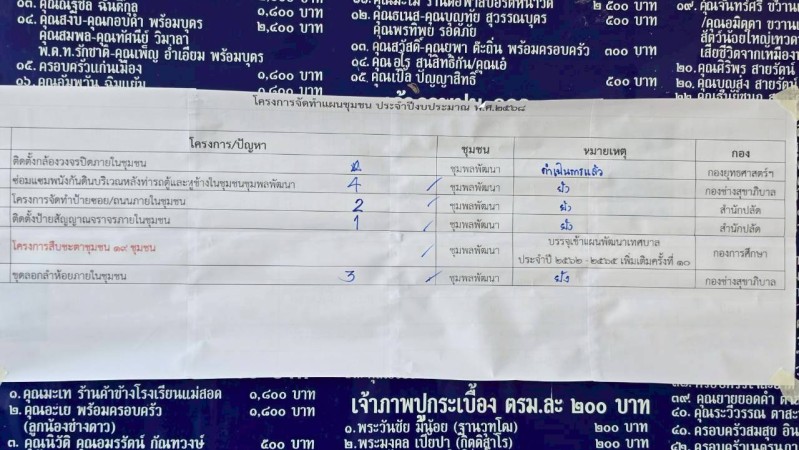 ๑๓. คุณณัฐชัล ฉันดิกุล
๑,๘๐๐ บาท
๑๔. คุณสงบ-คุณกอบคำ พร้อมบุตร
๒,๔๐๐ บาท
คุณสมพล-คุณทัศนีย์ วิมาลา
พ.ต.ท.รักชาติ-คุณเพ็ญ อ่ำเอี่ยม พร้อมบุตร
๑๕. ครอบครัวแก่นเมือง
๑,๘๐๐ บาท
๑,๘๐๐ บาท
๒,๕๐๐ บาท
๑๒. คุณธเนส-คุณบุญทัย สุวรรณบุตร
๕๐๐ บาท
คุณพรทิพย์ รอดภัย
๑๓. คุณสวัสดิ์-คุณยุพา ต๊ะถิ่น พร้อมครอบครัว
๓๐๐ บาท
๑๔. คุณอุไร สุนิสิทธิกัน/คุณเอ๋
๑๕. คุณเปิ้ล ปัญญาสิทธิ์
๕๐๐ บาท
๑๙. คุณจันทร์ศรี
เสียชีวิตจากเหมืองท
๒๐. คุณศิริพร สายรัตน์
๒๑. คุณบุญส่ง สายรัตน์
โครงการจัดทำแผนชุมชน ประจำปีงบประมาณ พ.ศ.๒๕๖๘
โครงการ/ปัญหา ชุมชน หมายเหตุ กอง
ติดตั้งกล้องวงจรปิดภายในชุมชน ชุมพลพัฒนา ดำเนินการแล้ว กองยุทธศาสตร์ฯ
ซ่อมแซมพนังกันดินบริเวณหลังท่ารถตู้และหูช้างในชุมชนชุมพลพัฒนา 4 / ชุมพลพัฒนา ยัง กองช่างสุขาภิบาล
โครงการจัดทำป้ายซอย/ถนนภายในชุมชน 2 / ชุมพลพัฒนา ยัง สำนักปลัด
ติดตั้งป้ายสัญญาณจราจรภายในชุมชน 1 / ชุมพลพัฒนา ยัง สำนักปลัด
โครงการสืบชะตาชุมชน ๑๙ ชุมชน / ชุมพลพัฒนา บรรจุเข้าแผนพัฒนาเทศบาล กองการศึกษา
ประจำปี ๒๕๖๒ - ๒๕๖๕ เพิ่มเติมครั้งที่ ๑๐
ขุดลอกลำห้อยภายในชุมชน 3 / ชุมพลพัฒนา ยัง กองช่างสุขาภิบาล
๑. คุณมะเท ร้านค้าข้างโรงเรียนแม่สอด ๑,๘๐๐ บาท
๒. คุณอะเย พร้อมครอบครัว ๑,๘๐๐ บาท
(ลูกน้องช่างดาว)
๓. คุณนิวัติ คุณอมรรัตน์ กัณทวงษ์ ๕๐๐ บาท
เจ้าภาพปูกระเบื้อง ตรม.ละ ๒๐๐ บาท
๑. พระวันชัย มีน้อย (ฐานวุทโฒ) ๒๐๐ บาท
๒. พระมงคล เปี้ยปา (กิตติสาโร) ๒๐๐ บาท
๓๙. คุณยายยอดคำ
๔๐. คุณระวีวรรณ ตาสะ
๔๑. ครอบครัวสมสุข